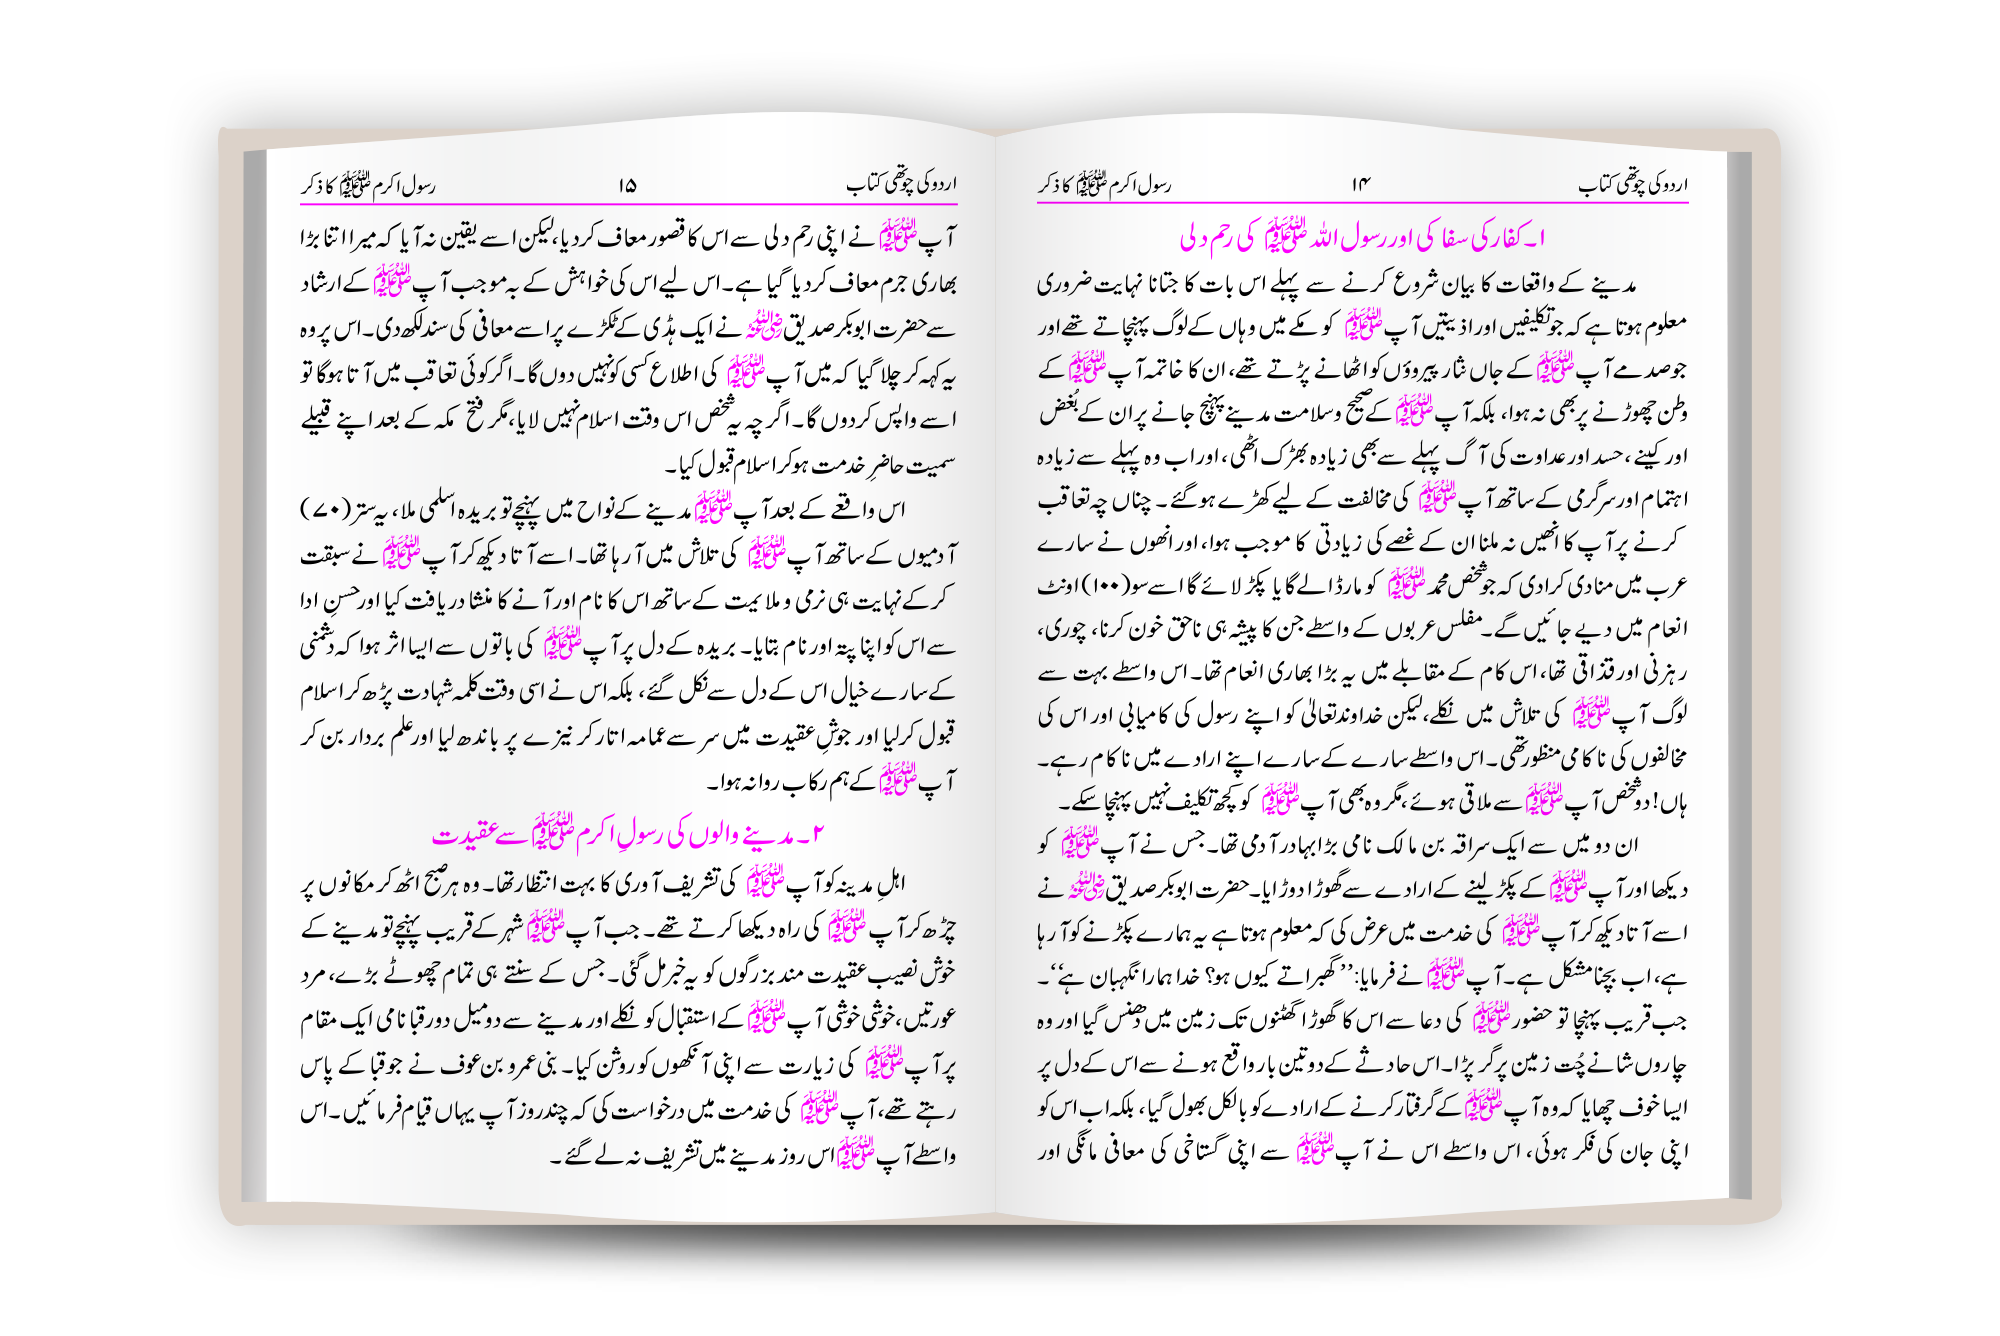 اردو کی چوتھی کتاب ۱۴ رسول اکرم ﷺ کا ذکر
۱۔ کفار کی سفاکی اور رسول اللہ ﷺ کی رحم دلی
مدینے کے واقعات کا بیان شروع کرنے سے پہلے اس بات کا جتانا نہایت ضروری
معلوم ہوتا ہے کہ جو تکلیفیں اور اذیتیں آپ ﷺ کو مکے میں وہاں کے لوگ پہنچاتے تھے اور
جو صدمے آپ ﷺ کے جاں نثار پیروؤں کو اٹھانے پڑتے تھے، ان کا خاتمہ آپ ﷺ کے
وطن چھوڑنے پر بھی نہ ہوا، بلکہ آپ ﷺ کے صحیح وسلامت مدینے پہنچ جانے پر ان کے بُغض
اور کینے، حسد اور عداوت کی آگ پہلے سے بھی زیادہ بھڑک اٹھی، اور اب وہ پہلے سے زیادہ
اہتمام اور سرگرمی کے ساتھ آپ ﷺ کی مخالفت کے لیے کھڑے ہو گئے۔ چناں چہ تعاقب
کرنے پر آپ کا انھیں نہ ملنا ان کے غصے کی زیادتی کا موجب ہوا، اور انھوں نے سارے
عرب میں منادی کرادی کہ جو شخص محمد ﷺ کو مار ڈالے گا یا پکڑ لائے گا اسے سو (۱۰۰) اونٹ
انعام میں دیے جائیں گے۔ مفلس عربوں کے واسطے جن کا پیشہ ہی ناحق خون کرنا، چوری،
رہزنی اور قذاقی تھا، اس کام کے مقابلے میں یہ بڑا بھاری انعام تھا۔ اس واسطے بہت سے
لوگ آپ ﷺ کی تلاش میں نکلے، لیکن خداوند تعالیٰ کو اپنے رسول کی کامیابی اور اس کی
مخالفوں کی ناکامی منظور تھی۔ اس واسطے سارے کے سارے اپنے ارادے میں ناکام رہے۔
ہاں! دو شخص آپ ﷺ سے ملاقی ہوئے، مگر وہ بھی آپ ﷺ کو کچھ تکلیف نہیں پہنچا سکے۔
ان دو میں سے ایک سراقہ بن مالک نامی بڑا بہادر آدمی تھا۔ جس نے آپ ﷺ کو
دیکھا اور آپ ﷺ کے پکڑ لینے کے ارادے سے گھوڑا دوڑایا۔ حضرت ابوبکر صدیق رضی اللہ عنہ نے
اسے آتا دیکھ کر آپ ﷺ کی خدمت میں عرض کی کہ معلوم ہوتا ہے یہ ہمارے پکڑنے کو آ رہا
ہے، اب بچنا مشکل ہے۔ آپ ﷺ نے فرمایا: ’’گھبراتے کیوں ہو؟ خدا ہمارا نگہبان ہے‘‘۔
جب قریب پہنچا تو حضور ﷺ کی دعا سے اس کا گھوڑا گھٹنوں تک زمین میں دھنس گیا اور وہ
چاروں شانے چُت زمین پر گر پڑا۔ اس حادثے کے دو تین بار واقع ہونے سے اس کے دل پر
ایسا خوف چھایا کہ وہ آپ ﷺ کے گرفتار کرنے کے ارادے کو بالکل بھول گیا، بلکہ اب اس کو
اپنی جان کی فکر ہوئی، اس واسطے اس نے آپ ﷺ سے اپنی گستاخی کی معافی مانگی اور
اردو کی چوتھی کتاب ۱۵ رسول اکرم ﷺ کا ذکر
آپ ﷺ نے اپنی رحم دلی سے اس کا قصور معاف کردیا، لیکن اسے یقین نہ آیا کہ میرا اتنا بڑا
بھاری جرم معاف کردیا گیا ہے۔ اس لیے اس کی خواہش کے بہ موجب آپ ﷺ کے ارشاد
سے حضرت ابوبکر صدیق رضی اللہ عنہ نے ایک ہڈی کے ٹکڑے پر اسے معافی کی سند لکھ دی۔ اس پر وہ
یہ کہہ کر چلا گیا کہ میں آپ ﷺ کی اطلاع کسی کو نہیں دوں گا۔ اگر کوئی تعاقب میں آتا ہوگا تو
اسے واپس کردوں گا۔ اگر چہ یہ شخص اس وقت اسلام نہیں لایا، مگر فتح مکہ کے بعد اپنے قبیلے
سمیت حاضرِ خدمت ہو کر اسلام قبول کیا۔
اس واقعے کے بعد آپ ﷺ مدینے کے نواح میں پہنچے تو بریدہ اسلمی ملا، یہ ستر (۷۰)
آدمیوں کے ساتھ آپ ﷺ کی تلاش میں آرہا تھا۔ اسے آتا دیکھ کر آپ ﷺ نے سبقت
کر کے نہایت ہی نرمی و ملایمت کے ساتھ اس کا نام اور آنے کا منشا دریافت کیا اور حسنِ ادا
سے اس کو اپنا پتہ اور نام بتایا۔ بریدہ کے دل پر آپ ﷺ کی باتوں سے ایسا اثر ہوا کہ دشمنی
کے سارے خیال اس کے دل سے نکل گئے، بلکہ اس نے اسی وقت کلمہ شہادت پڑھ کر اسلام
قبول کرلیا اور جوشِ عقیدت میں سر سے عمامہ اتار کر نیزے پر باندھ لیا اور علم بردار بن کر
آپ ﷺ کے ہم رکاب روانہ ہوا۔
۲۔ مدینے والوں کی رسولِ اکرم ﷺ سے عقیدت
اہلِ مدینہ کو آپ ﷺ کی تشریف آوری کا بہت انتظار تھا۔ وہ ہر صبح اٹھ کر مکانوں پر
چڑھ کر آپ ﷺ کی راہ دیکھا کرتے تھے۔ جب آپ ﷺ شہر کے قریب پہنچے تو مدینے کے
خوش نصیب عقیدت مند بزرگوں کو یہ خبر مل گئی۔ جس کے سنتے ہی تمام چھوٹے بڑے، مرد
عورتیں، خوشی خوشی آپ ﷺ کے استقبال کو نکلے اور مدینے سے دو میل دور قبا نامی ایک مقام
پر آپ ﷺ کی زیارت سے اپنی آنکھوں کو روشن کیا۔ بنی عمرو بن عوف نے جو قبا کے پاس
رہتے تھے، آپ ﷺ کی خدمت میں درخواست کی کہ چند روز آپ یہاں قیام فرمائیں۔ اس
واسطے آپ ﷺ اس روز مدینے میں تشریف نہ لے گئے۔